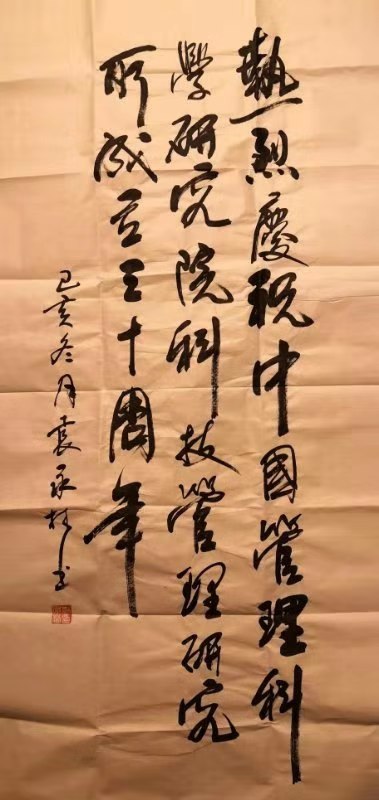 熱烈慶祝中國管理科
學研究院科技管理研究
所成立三十周年
己亥冬月袁承楷书